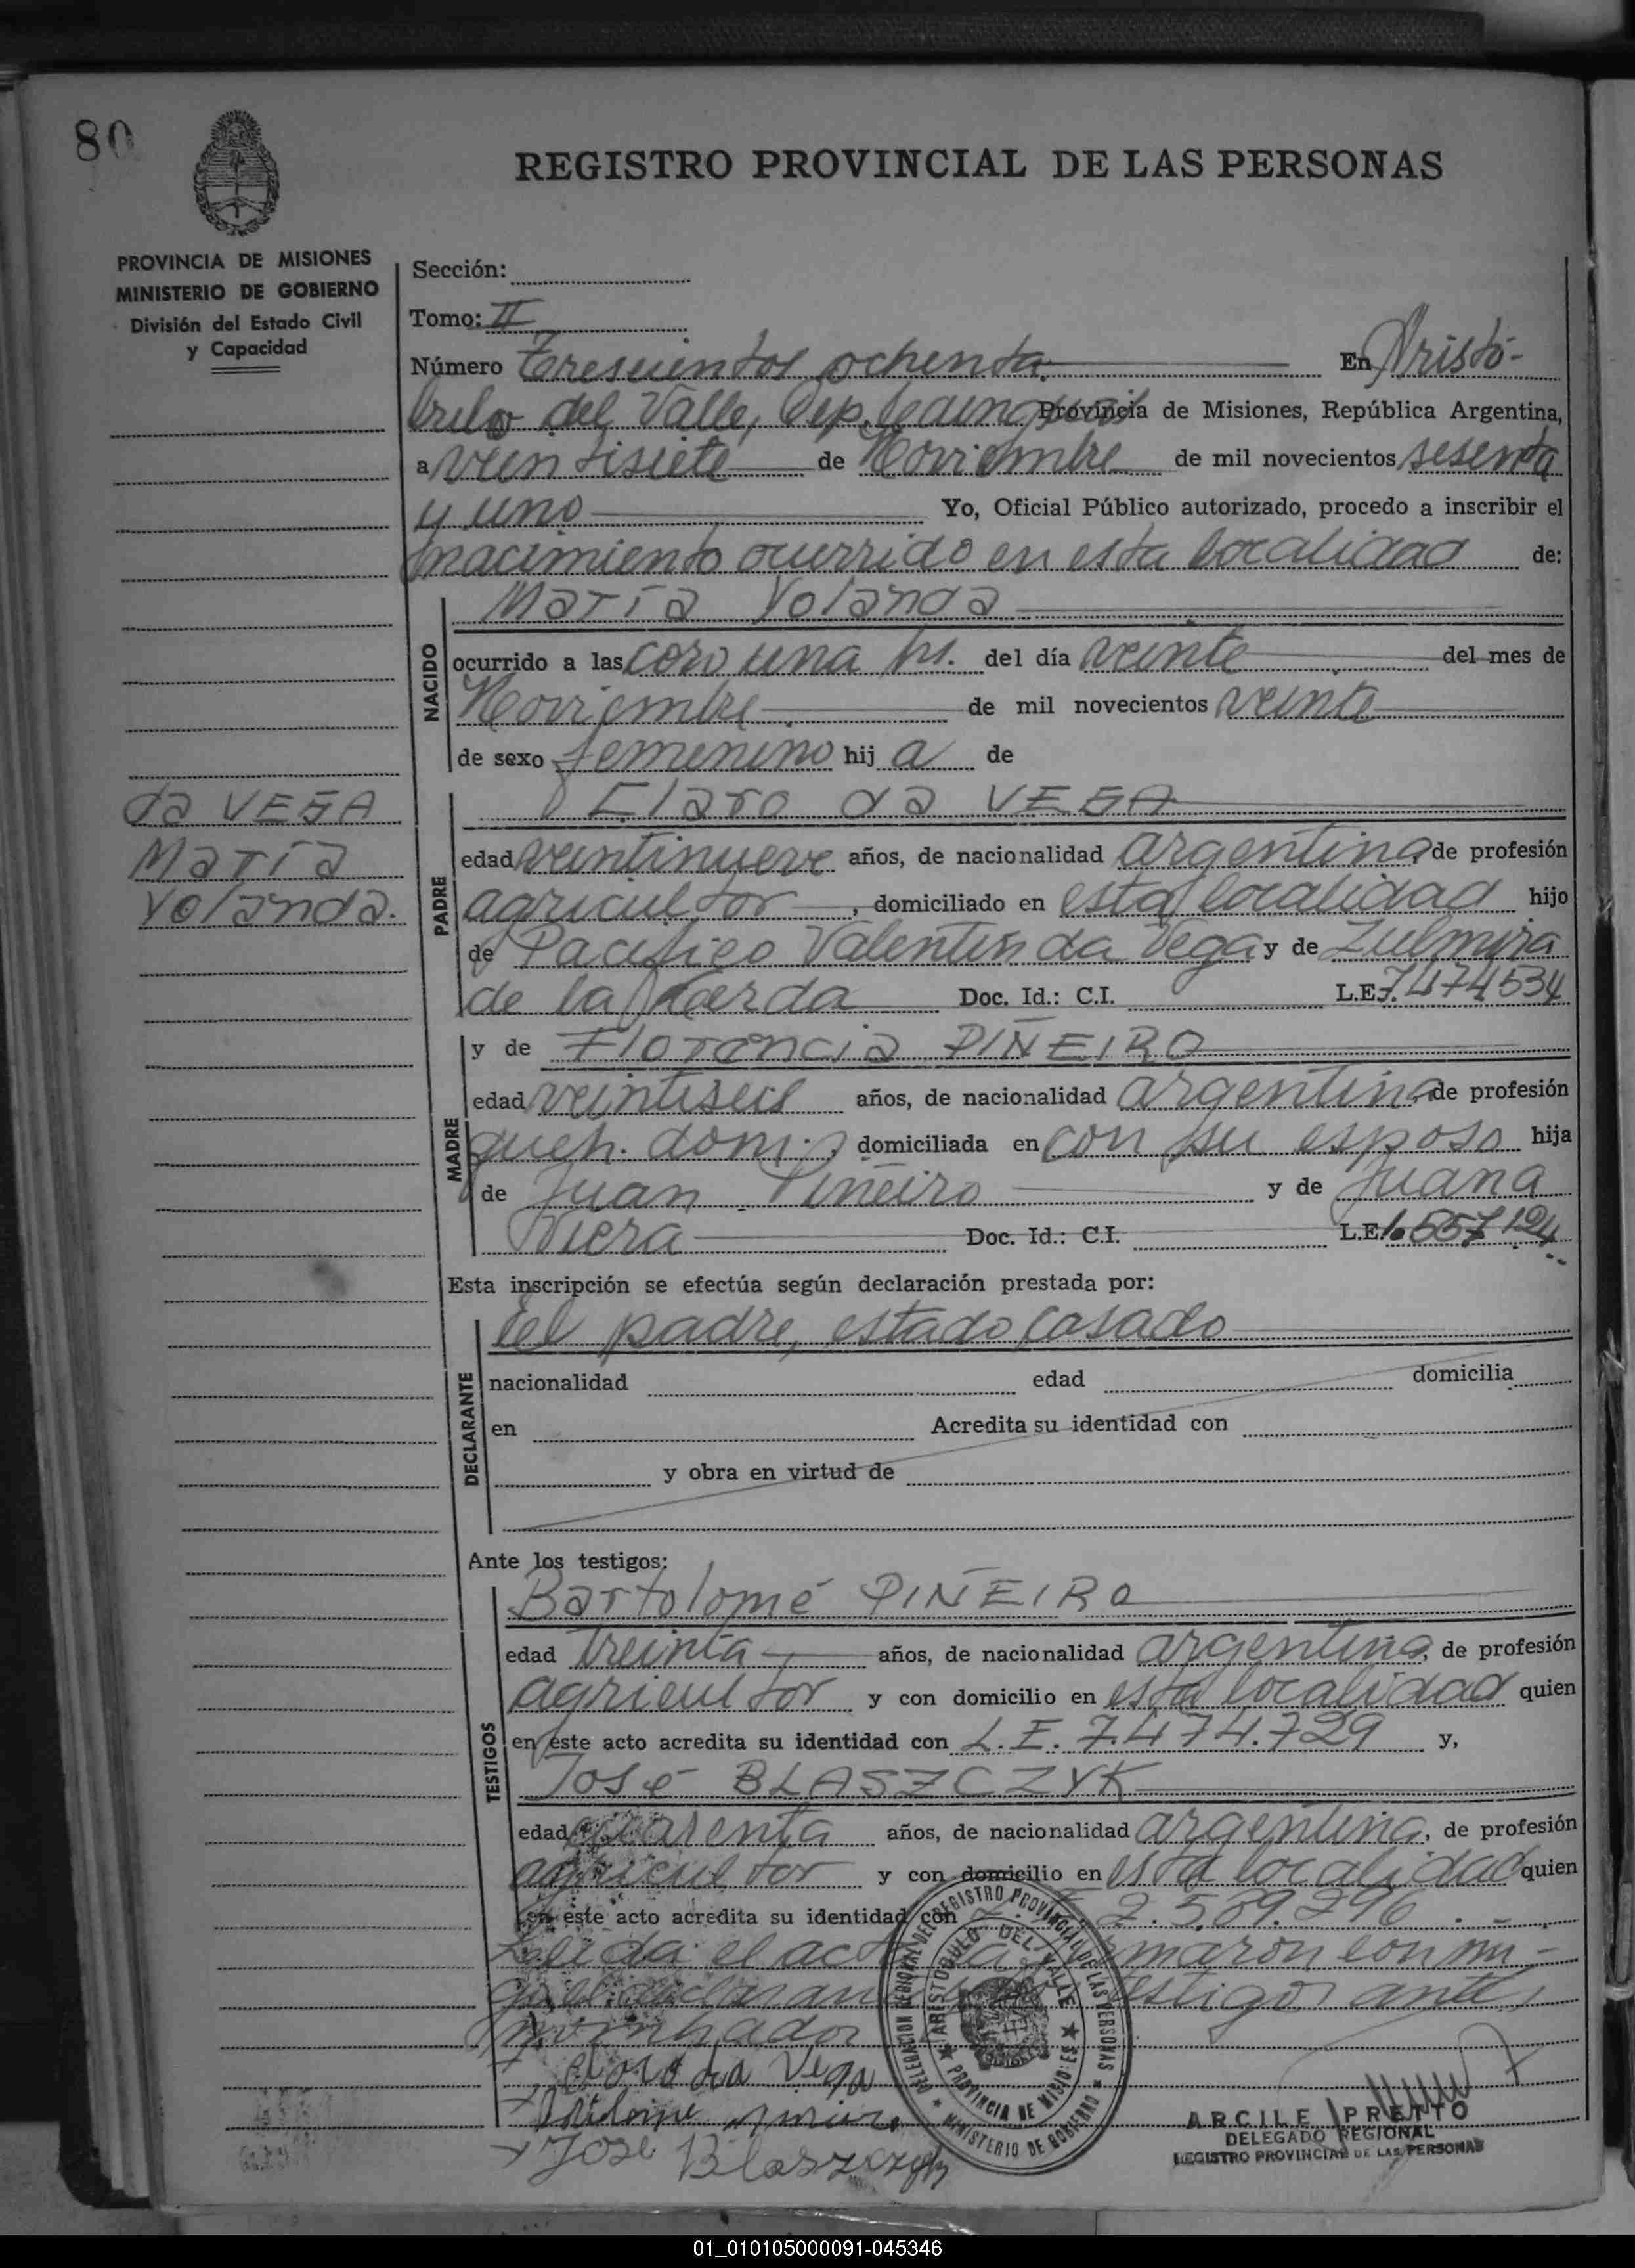 80
REGISTRO PROVINCIAL DE LAS PERSONAS
PROVINCIA DE MISIONES
MINISTERIO DE GOBIERNO
División del Estado Civil
y Capacidad
Sección:
Tomo: II
Número Trescientos ochenta. En Aristó-
bulo del Valle, Dep. Provincia de Misiones, República Argentina,
a veintisiete de Noviembre de mil novecientos sesenta
y uno Yo, Oficial Público autorizado, procedo a inscribir el
nacimiento ocurrido en esta localidad de:
NACIDO
María Yolanda
ocurrido a las cero una hs. del día veinte del mes de
Noviembre de mil novecientos veinte
de sexo femenino hij a de
da VEGA
María
Yolanda.
PADRE
Claro da VEGA
edad veintinueve años, de nacionalidad argentina, de profesión
agricultor, domiciliado en esta localidad hijo
de Pacífico Valentín da Vega y de Zulmira
de la Doc. Id.: C.I. L.E. 7.474534
MADRE
y de Florencia PIÑEIRO
edad veintiseis años, de nacionalidad argentina, de profesión
queh. dom., domiciliada en con su esposo hija
de Juan Piñeiro y de Juana
Viera Doc. Id.: C.I. L.E. 1.557194
Esta inscripción se efectúa según declaración prestada por:
DECLARANTE
el padre, estado casado
nacionalidad edad domicilia
en Acredita su identidad con
y obra en virtud de
Ante los testigos:
TESTIGOS
Bartolomé PIÑEIRO
edad treinta años, de nacionalidad argentina, de profesión
agricultor y con domicilio en esta localidad quien
en este acto acredita su identidad con L.E. 7.474.729 y,
José BLASZCZYK
edad cuarenta años, de nacionalidad argentina, de profesión
agricultor y con domicilio en esta localidad quien
en este acto acredita su identidad con 2.589.296.-
Leida el acta la firmaron conmi-
go el declarante testigos ante
mencionados
Claro da Vega
José Blaszczyk
DELEGACION REGIONAL DEL REGISTRO PROVINCIAL DE LAS PERSONAS
ARISTOBULO DEL VALLE
PROVINCIA DE MISIONES
MINISTERIO DE GOBIERNO
ARCILE PRETTO
DELEGADO REGIONAL
REGISTRO PROVINCIAL DE LAS PERSONAS
01_010105000091-045346